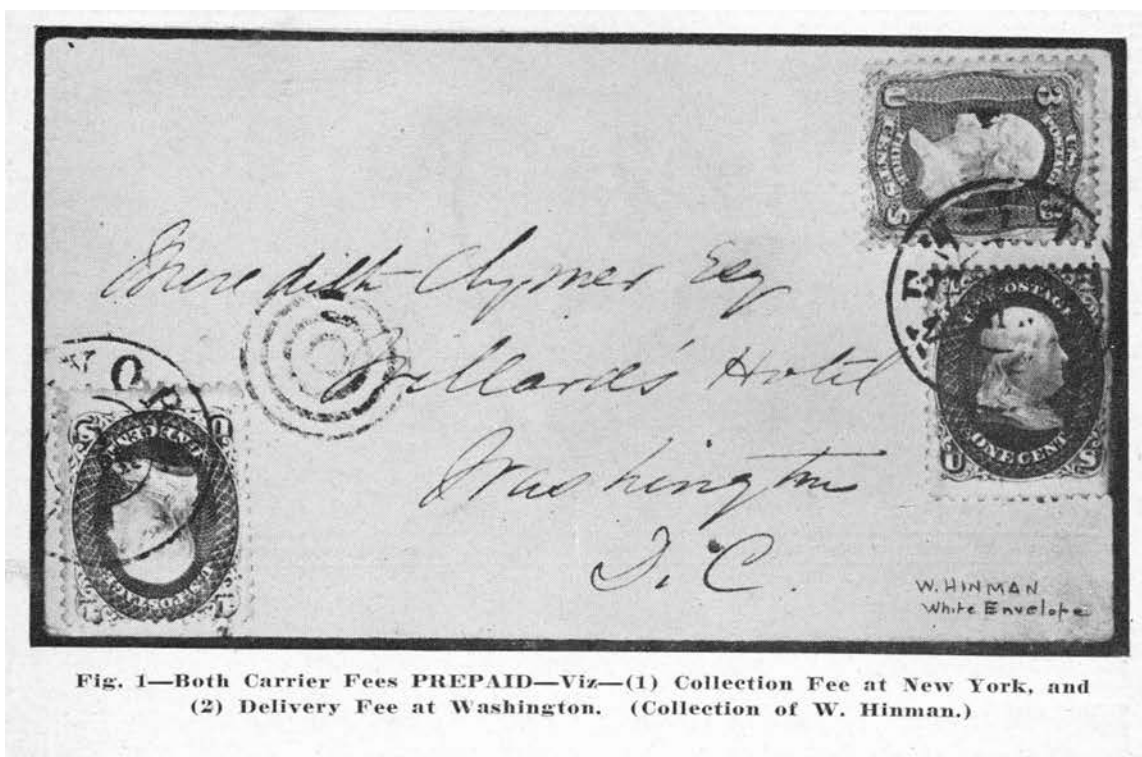 Meredith Clymer Esq
Willard's Hotel
Washington
D. C.
3
U.S. POSTAGE
THREE CENTS
U S
U.S. POSTAGE
ONE CENT
U S
W. HINMAN
White Envelope
Fig. 1—Both Carrier Fees PREPAID—Viz—(1) Collection Fee at New York, and
(2) Delivery Fee at Washington. (Collection of W. Hinman.)